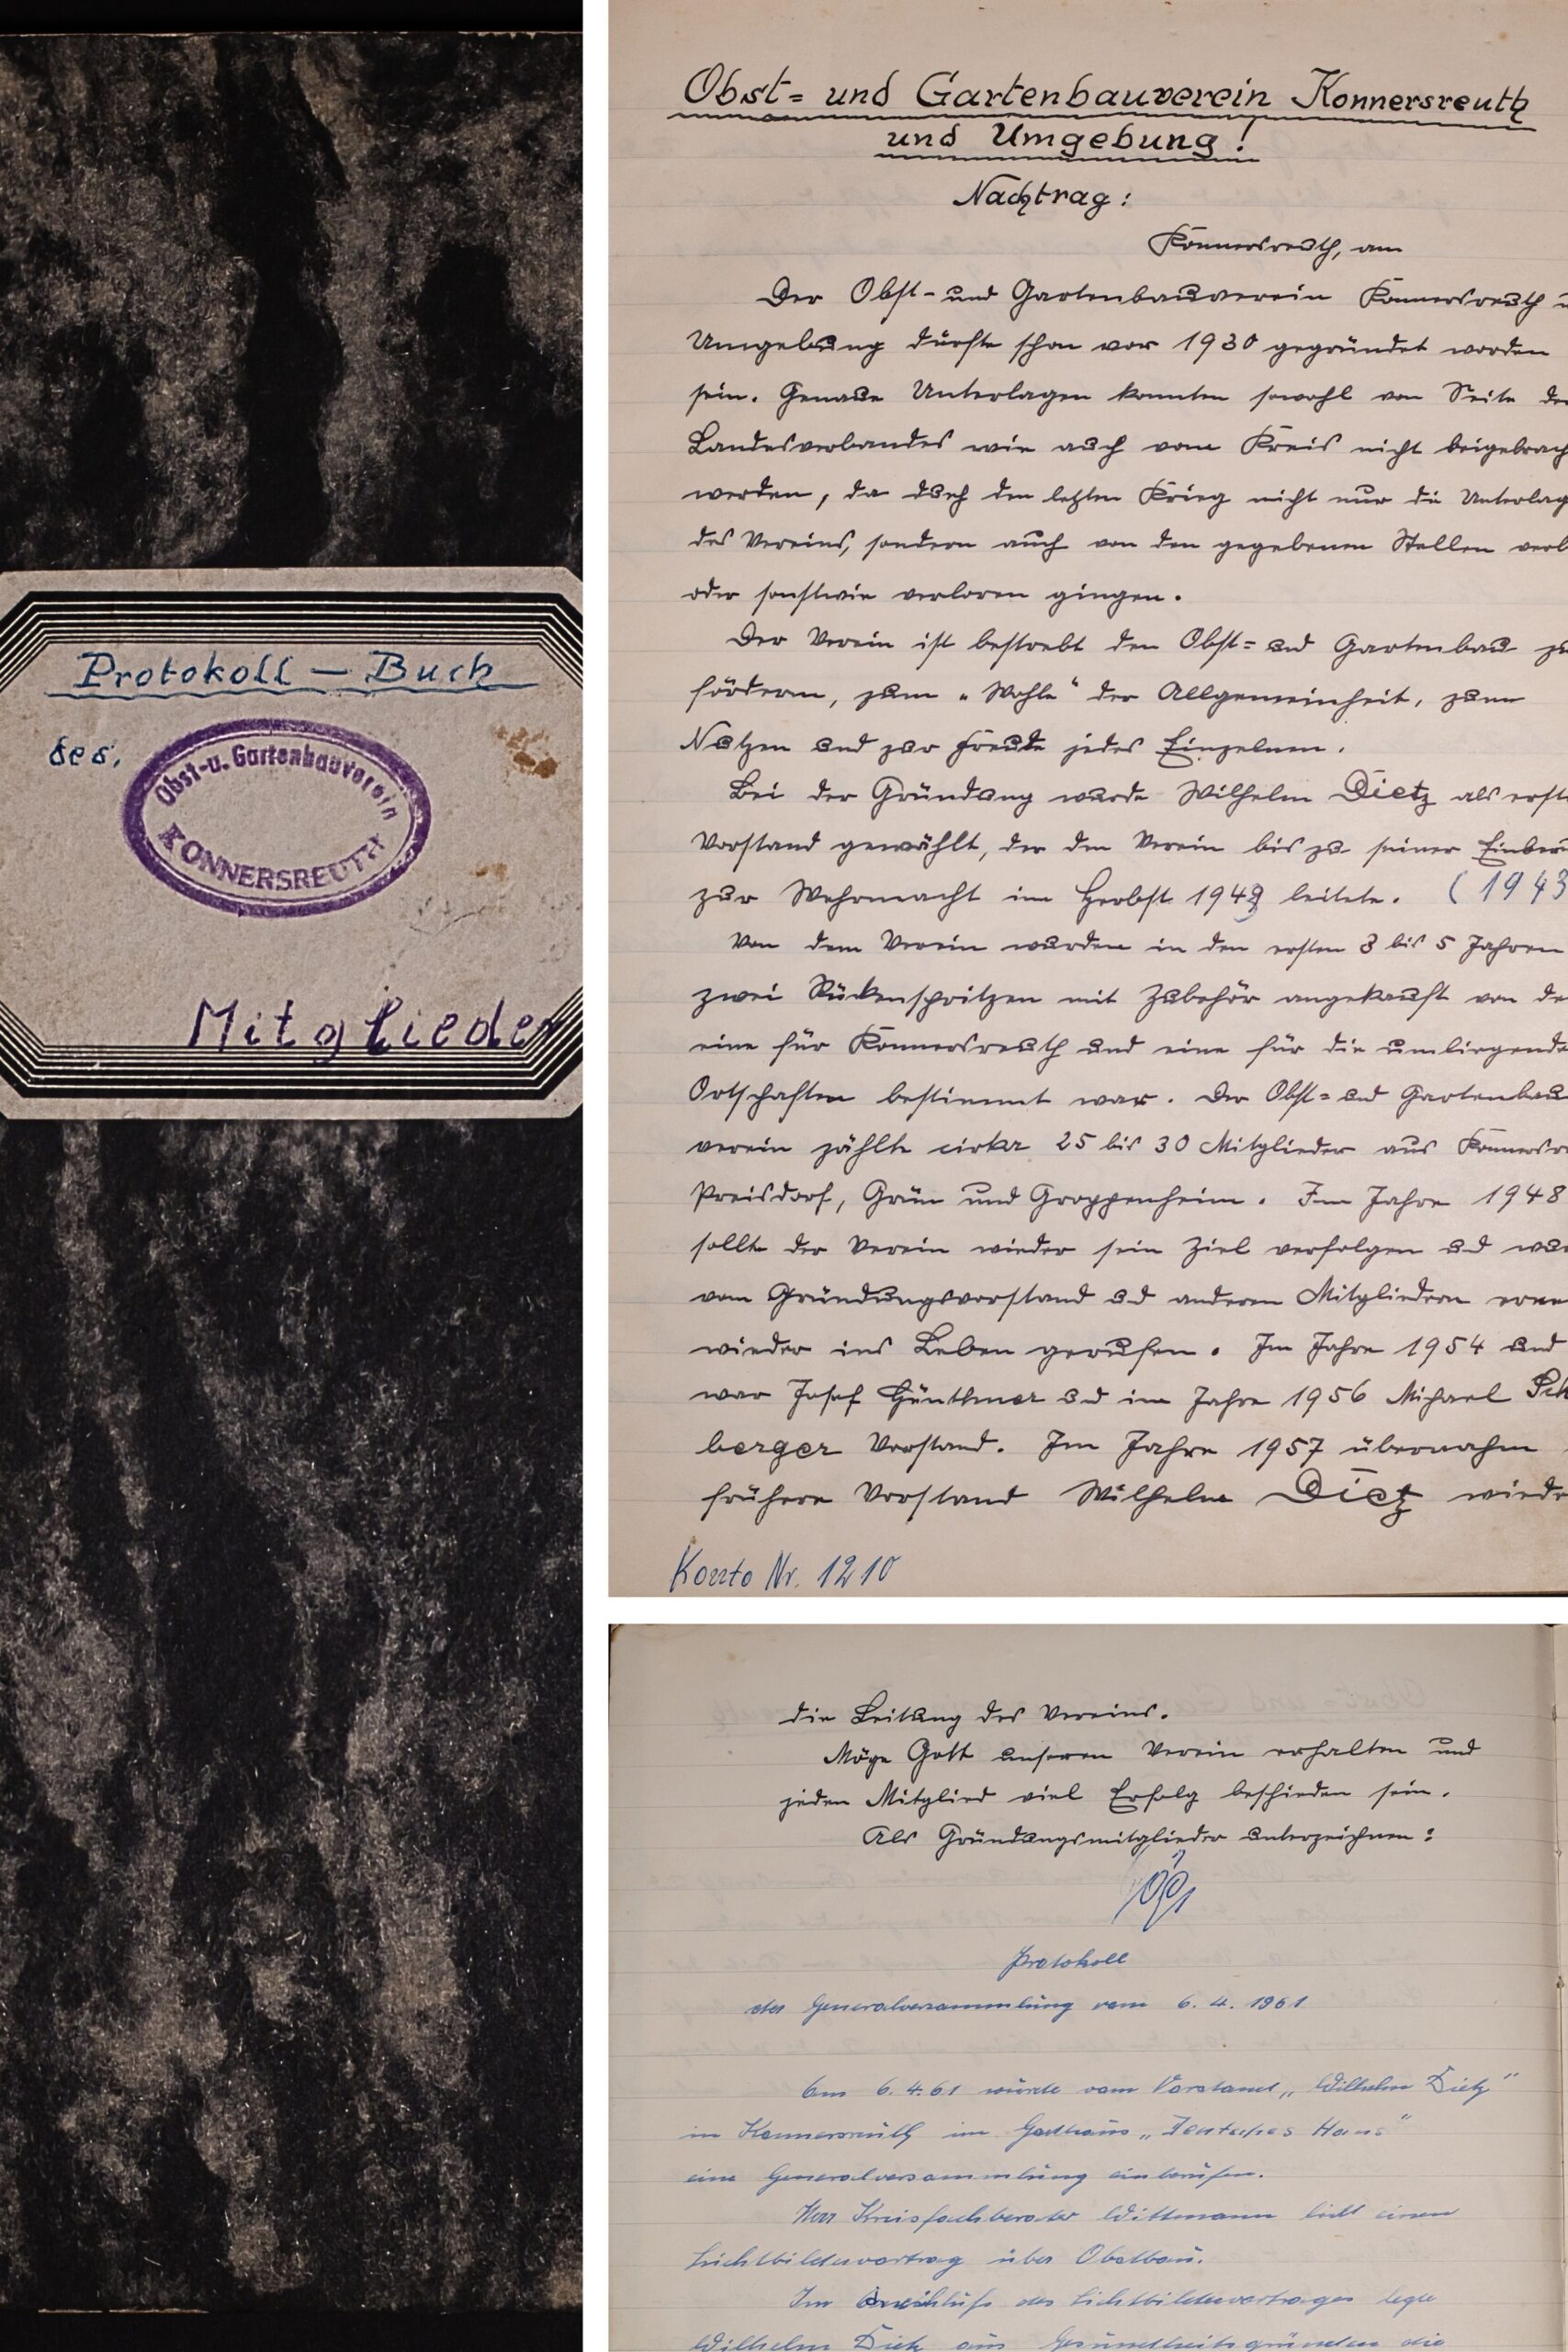 Protokoll — Buch
des.
Obst-u. Gartenbauverein
KONNERSREUTH
Mitglieder
Obst= und Gartenbauverein Konnersreuth
und Umgebung!
Nachtrag:
Konnersreuth, am
Der Obst- und Gartenbauverein Konnersreuth
Umgebung dürfte schon vor 1930 gegründet worden
sein. Genaue Unterlagen konnten sowohl von Seite
Landesverbandes wie auch vom Kreis nicht
werden, da durch den letzten Krieg nicht nur die
des Vereins, sondern auch von den gegebenen Stellen
oder sonstwie verloren gingen.
Der Verein ist bestrebt den Obst= und Gartenbau zu
fördern, zum „Wohle“ der Allgemeinheit, zum
Nutzen und zur Freude jedes Einzelnen.
Bei der Gründung wurde Wilhelm Dietz als
Vorstand gewählt, der den Verein bis zu seiner
zur Wehrmacht im Herbst leitete. (1943
Von dem Verein wurden in den ersten 3 bis 5 Jahren
zwei Rückenspritzen mit Zubehör angekauft von
eine für Konnersreuth und eine für die
Ortschaften bestimmt war. Der Obst= und Gartenbau
verein zählte cirka 25 bis 30 Mitglieder aus
Preisdorf, Grün und Groppenheim. Im Jahre 1948
sollte der Verein wieder sein Ziel verfolgen und
vom Gründungsvorstand und anderen Mitgliedern
wieder ins Leben gerufen. Im Jahre 1954 und
war Josef Günthner und im Jahre 1956 Michael Sch
berger Vorstand. Im Jahre 1957 übernahm
frühere Vorstand Wilhelm Dietz
Konto Nr. 1210
die Leitung des Vereins.
Möge Gott unseren Verein erhalten und
jeden Mitglied viel Erfolg beschieden sein.
Als Gründungsmitglieder unterzeichnen:
Protokoll
der Generalversammlung vom 6. 4. 1961
Am 6.4.61 wurde vom Vorstand „Wilhelm Dietz“
in Konnersreuth im Gasthaus „Deutsches Haus“
eine Generalversammlung einberufen.
Herr Kreisfachberater Wittmann hielt einen
Lichtbildervortrag über Obstbau.
Im Anschluß des Lichtbildervortrages legte
Wilhelm Dietz aus Gesundheitsgründen die